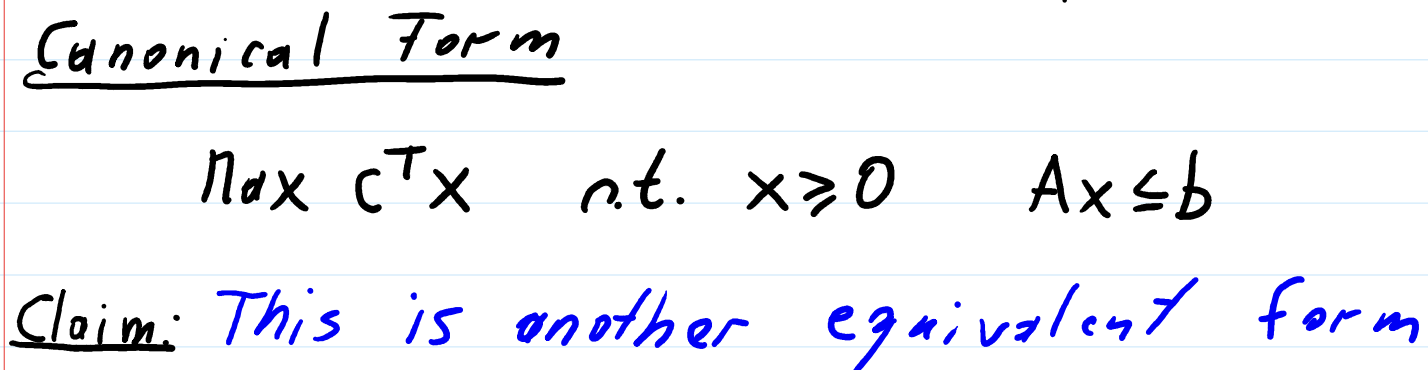 Canonical Form
Max cᵀx s.t. x≥0 Ax≤b
Claim: This is another equivalent form